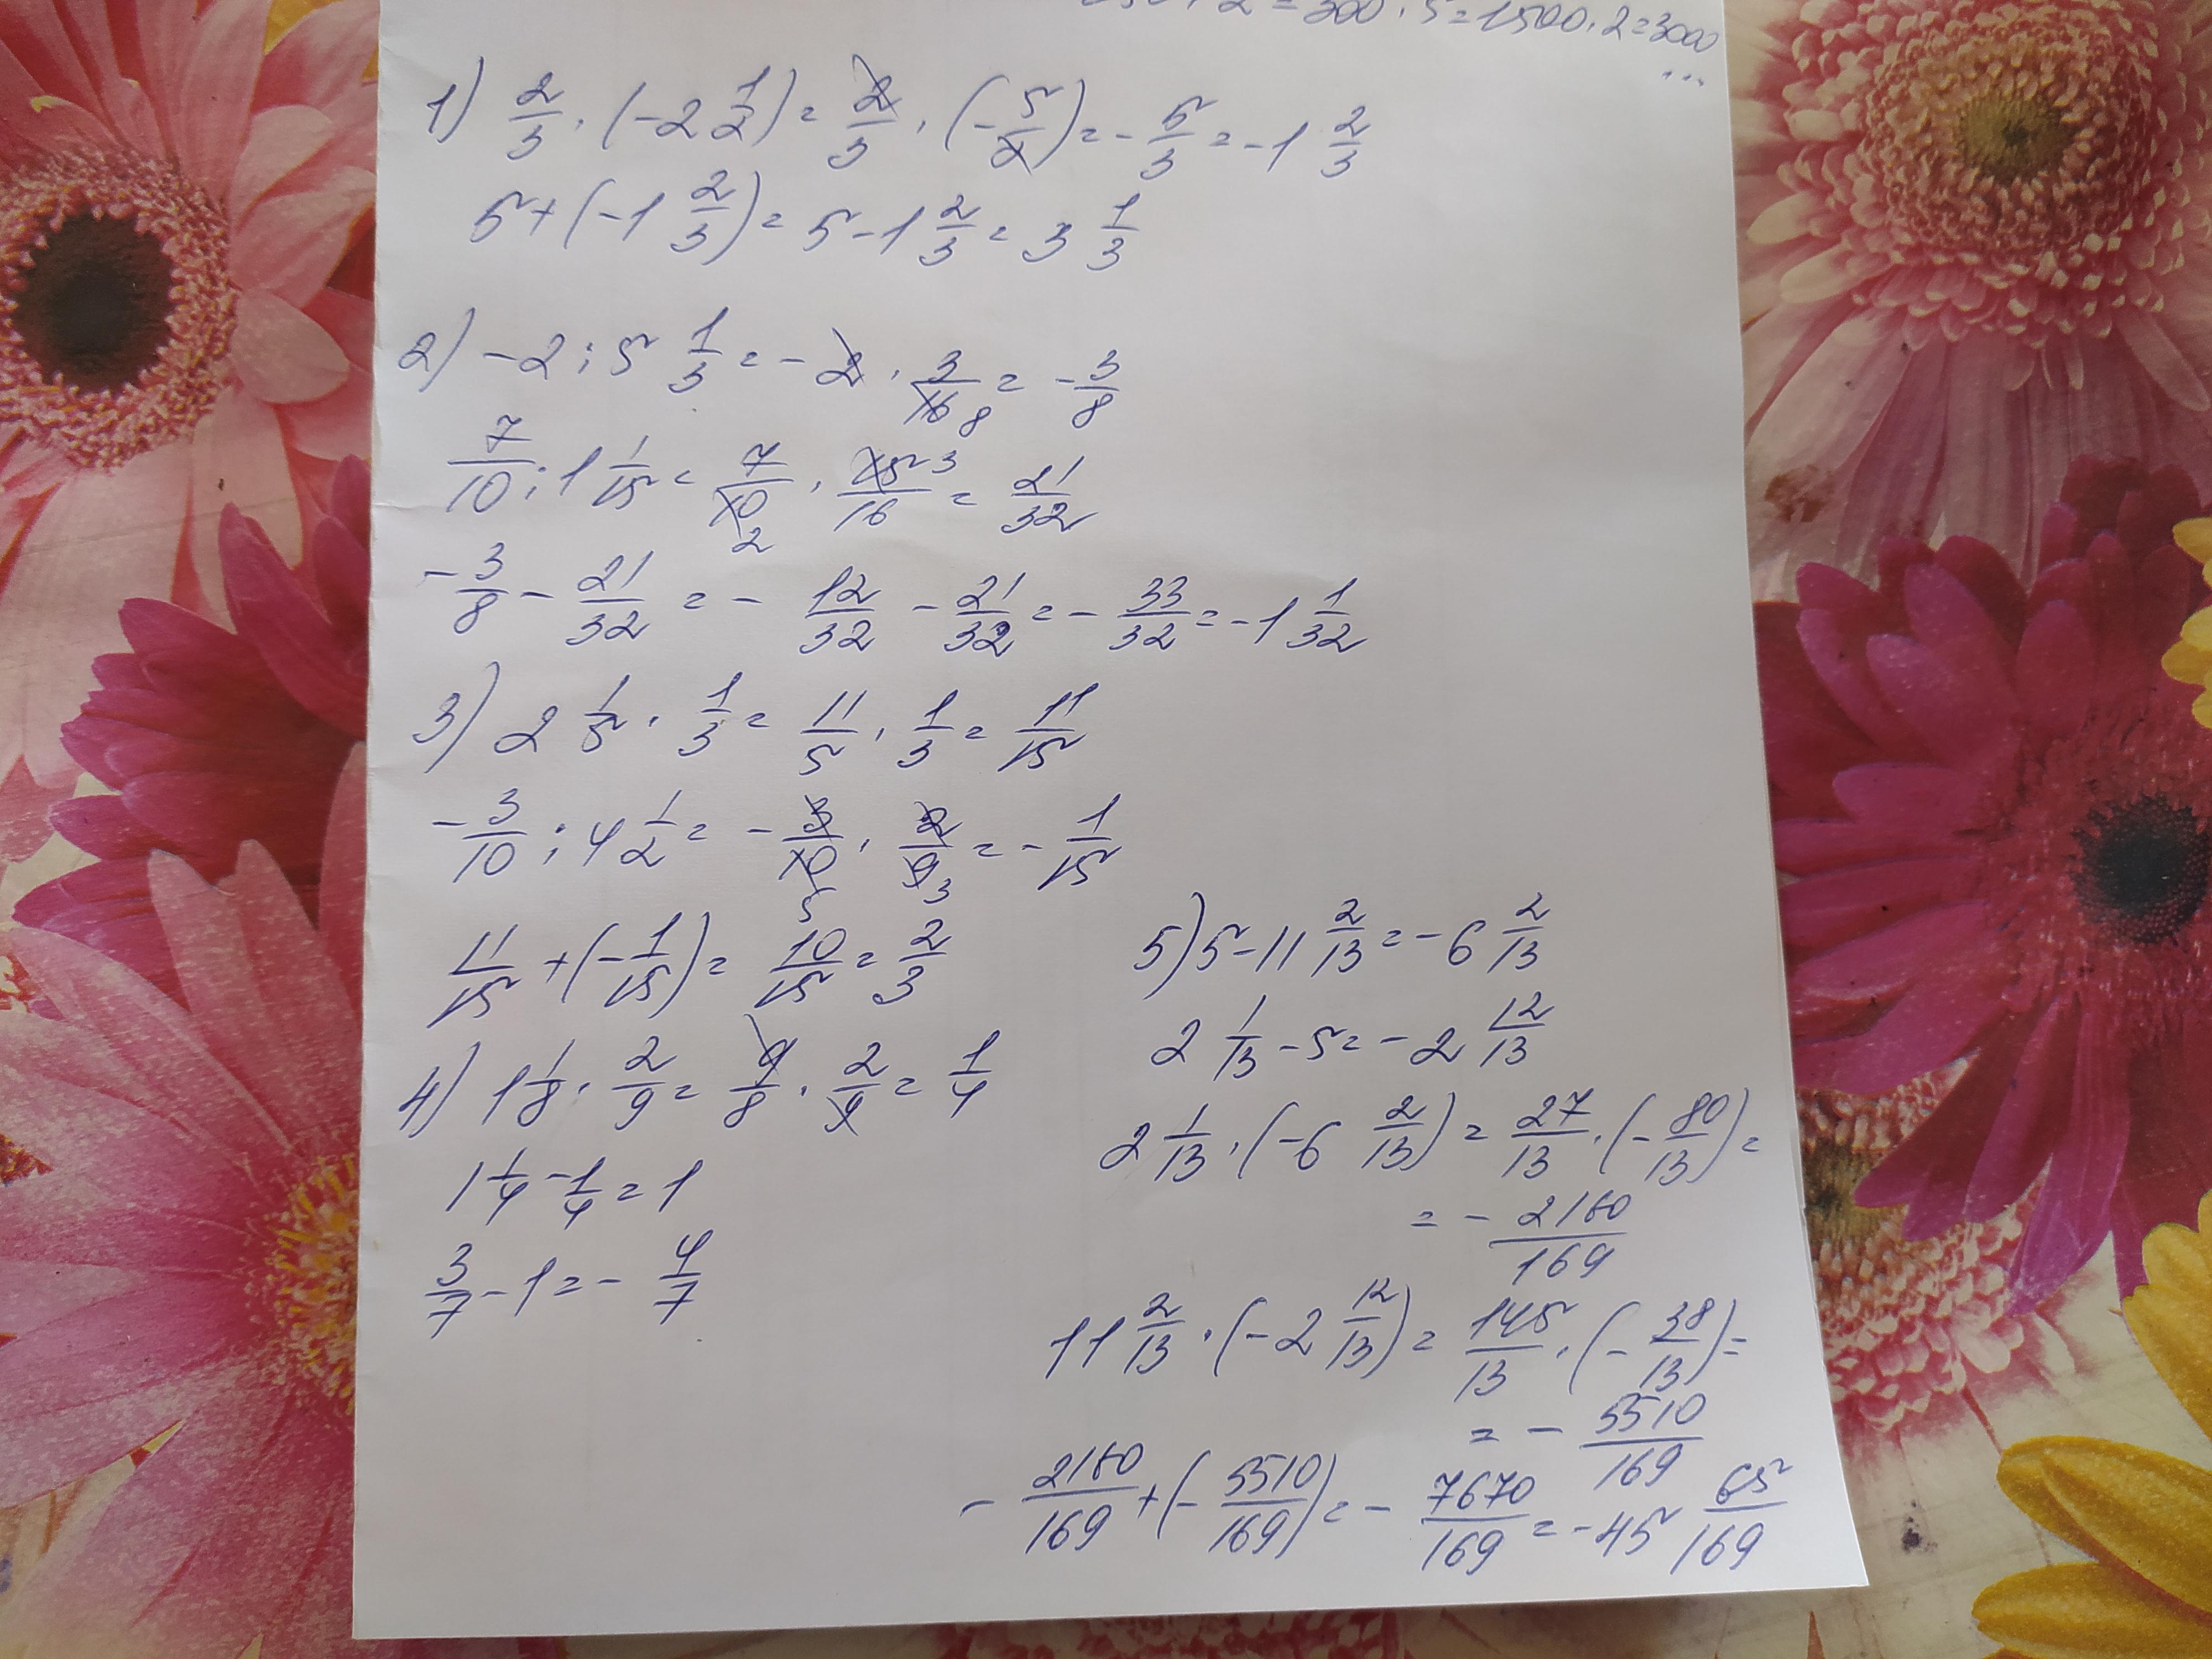 2 = 300 · 5 = 1500 · 2 = 3000
...
1) 2/3 · (-2 1/2) = 2/3 · (-5/2) = -5/3 = -1 2/3
5 + (-1 2/3) = 5 - 1 2/3 = 3 1/3
2) -2 : 5 1/3 = -2 · 3/16 8 = -3/8
7/10 : 1 1/15 = 7/10 2 · 15 3/16 = 21/32
-3/8 - 21/32 = -12/32 - 21/32 = -33/32 = -1 1/32
3) 2 1/5 · 1/3 = 11/5 · 1/3 = 11/15
-3/10 : 4 1/2 = -3/10 5 · 2/9 3 = -1/15
11/15 + (-1/15) = 10/15 = 2/3
4) 1 1/8 · 2/9 = 9/8 · 2/9 = 1/4
1 1/4 - 1/4 = 1
3/7 - 1 = -4/7
5) 5 - 11 2/13 = -6 2/13
2 1/13 - 5 = -2 12/13
2 1/13 · (-6 2/13) = 27/13 · (-80/13) =
= -2160/169
11 2/13 · (-2 12/13) = 145/13 · (-38/13) =
= -5510/169
-2160/169 + (-5510/169) = -7670/169 = -45 65/169